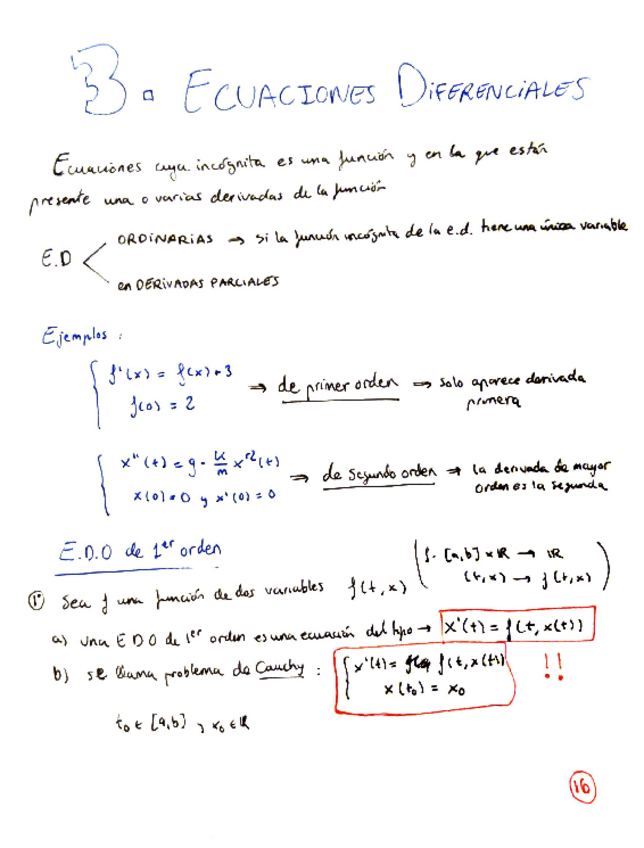 3. ECUACIONES DIFERENCIALES
Ecuaciones cuya incógnita es una función y en la que están
presente una o varias derivadas de la función
E.D
ORDINARIAS → si la función incógnita de la e.d. tiene una única variable
en DERIVADAS PARCIALES
Ejemplos:
f'(x) = f(x) + 3
f(0) = 2
⇒ de primer orden ⇒ solo aparece derivada
primera
x''(t) = g - k/m x'²(t)
x(0) = 0 y x'(0) = 0
⇒ de segundo orden ⇒ la derivada de mayor
orden es la segunda
E.D.O de 1er orden
1º Sea f una función de dos variables f(t,x) (f: [a,b] x ℝ → ℝ
(t,x) → f(t,x))
a) una E D O de 1er orden es una ecuación del tipo → x'(t) = f(t, x(t))
b) se llama problema de Cauchy : { x'(t) = f(t, x(t)) !!
x(t₀) = x₀
t₀ ∈ [a,b], x₀ ∈ ℝ
16